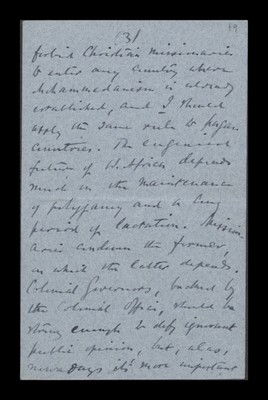 19
(3)
forbid Christian missionaries
to enter any country where
Mohammedanism is already
established, and I should
apply the same rule to pagan
countries. The eugenical
future of W. Africa depends
much on the maintenance
of polygamy and a long
period of lactation. Mission-
aries condemn the former,
on which the latter depends.
Colonial Governors, backed by
the Colonial Office, should be
strong enough to defy ignorant
public opinion, but, alas,
nowadays it's more important